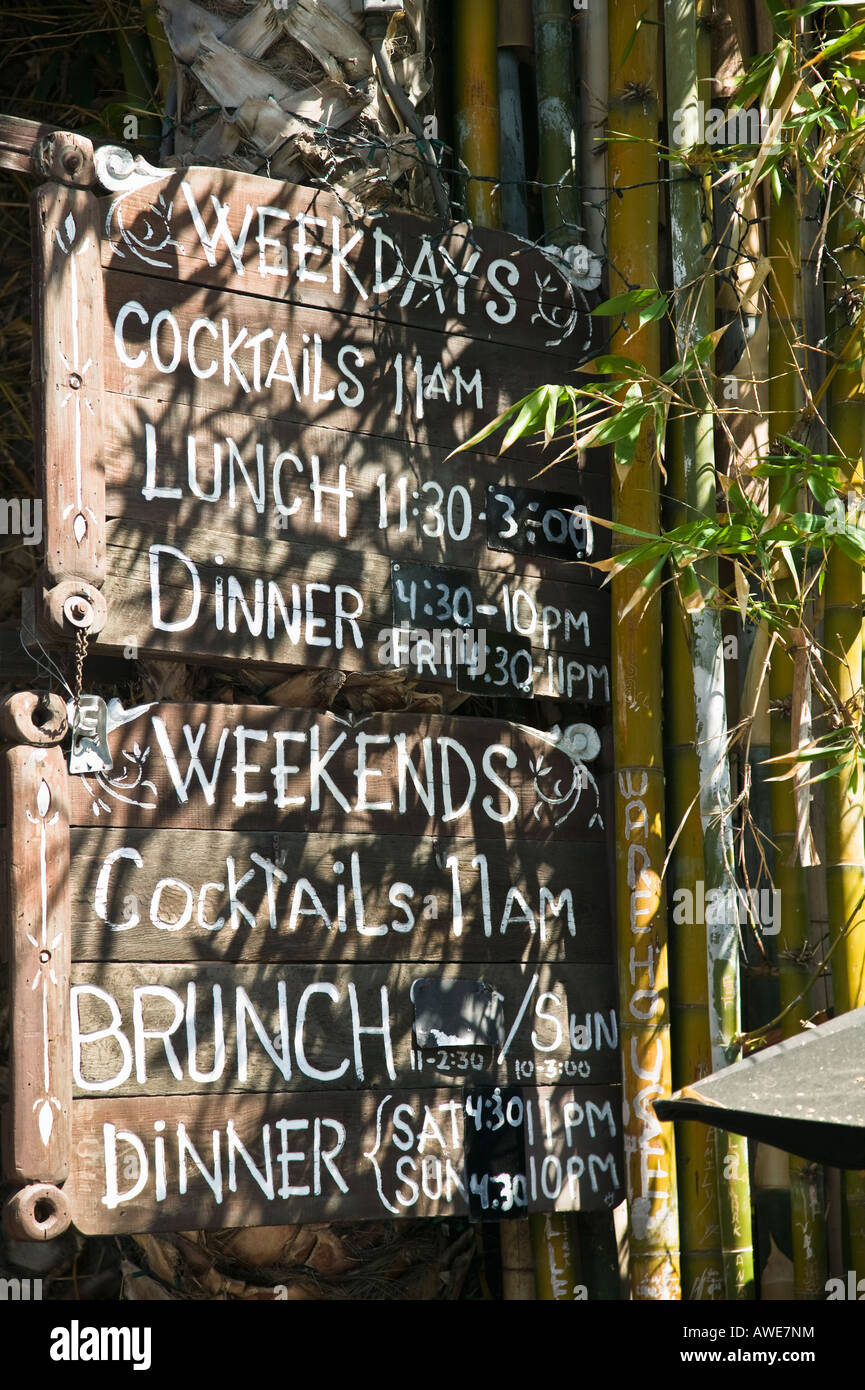 WEEKDAYS
COCKTAILS 11AM
LUNCH 11:30-3:00
DINNER 4:30-10PM
FRI 4:30-11PM
WEEKENDS
COCKTAILS 11AM
BRUNCH /SUN
11-2:30 10-3:00
DINNER {SAT 4:30 11PM
SUN 4:30 10PM
alamy
Image ID: AWE7NM
www.alamy.com